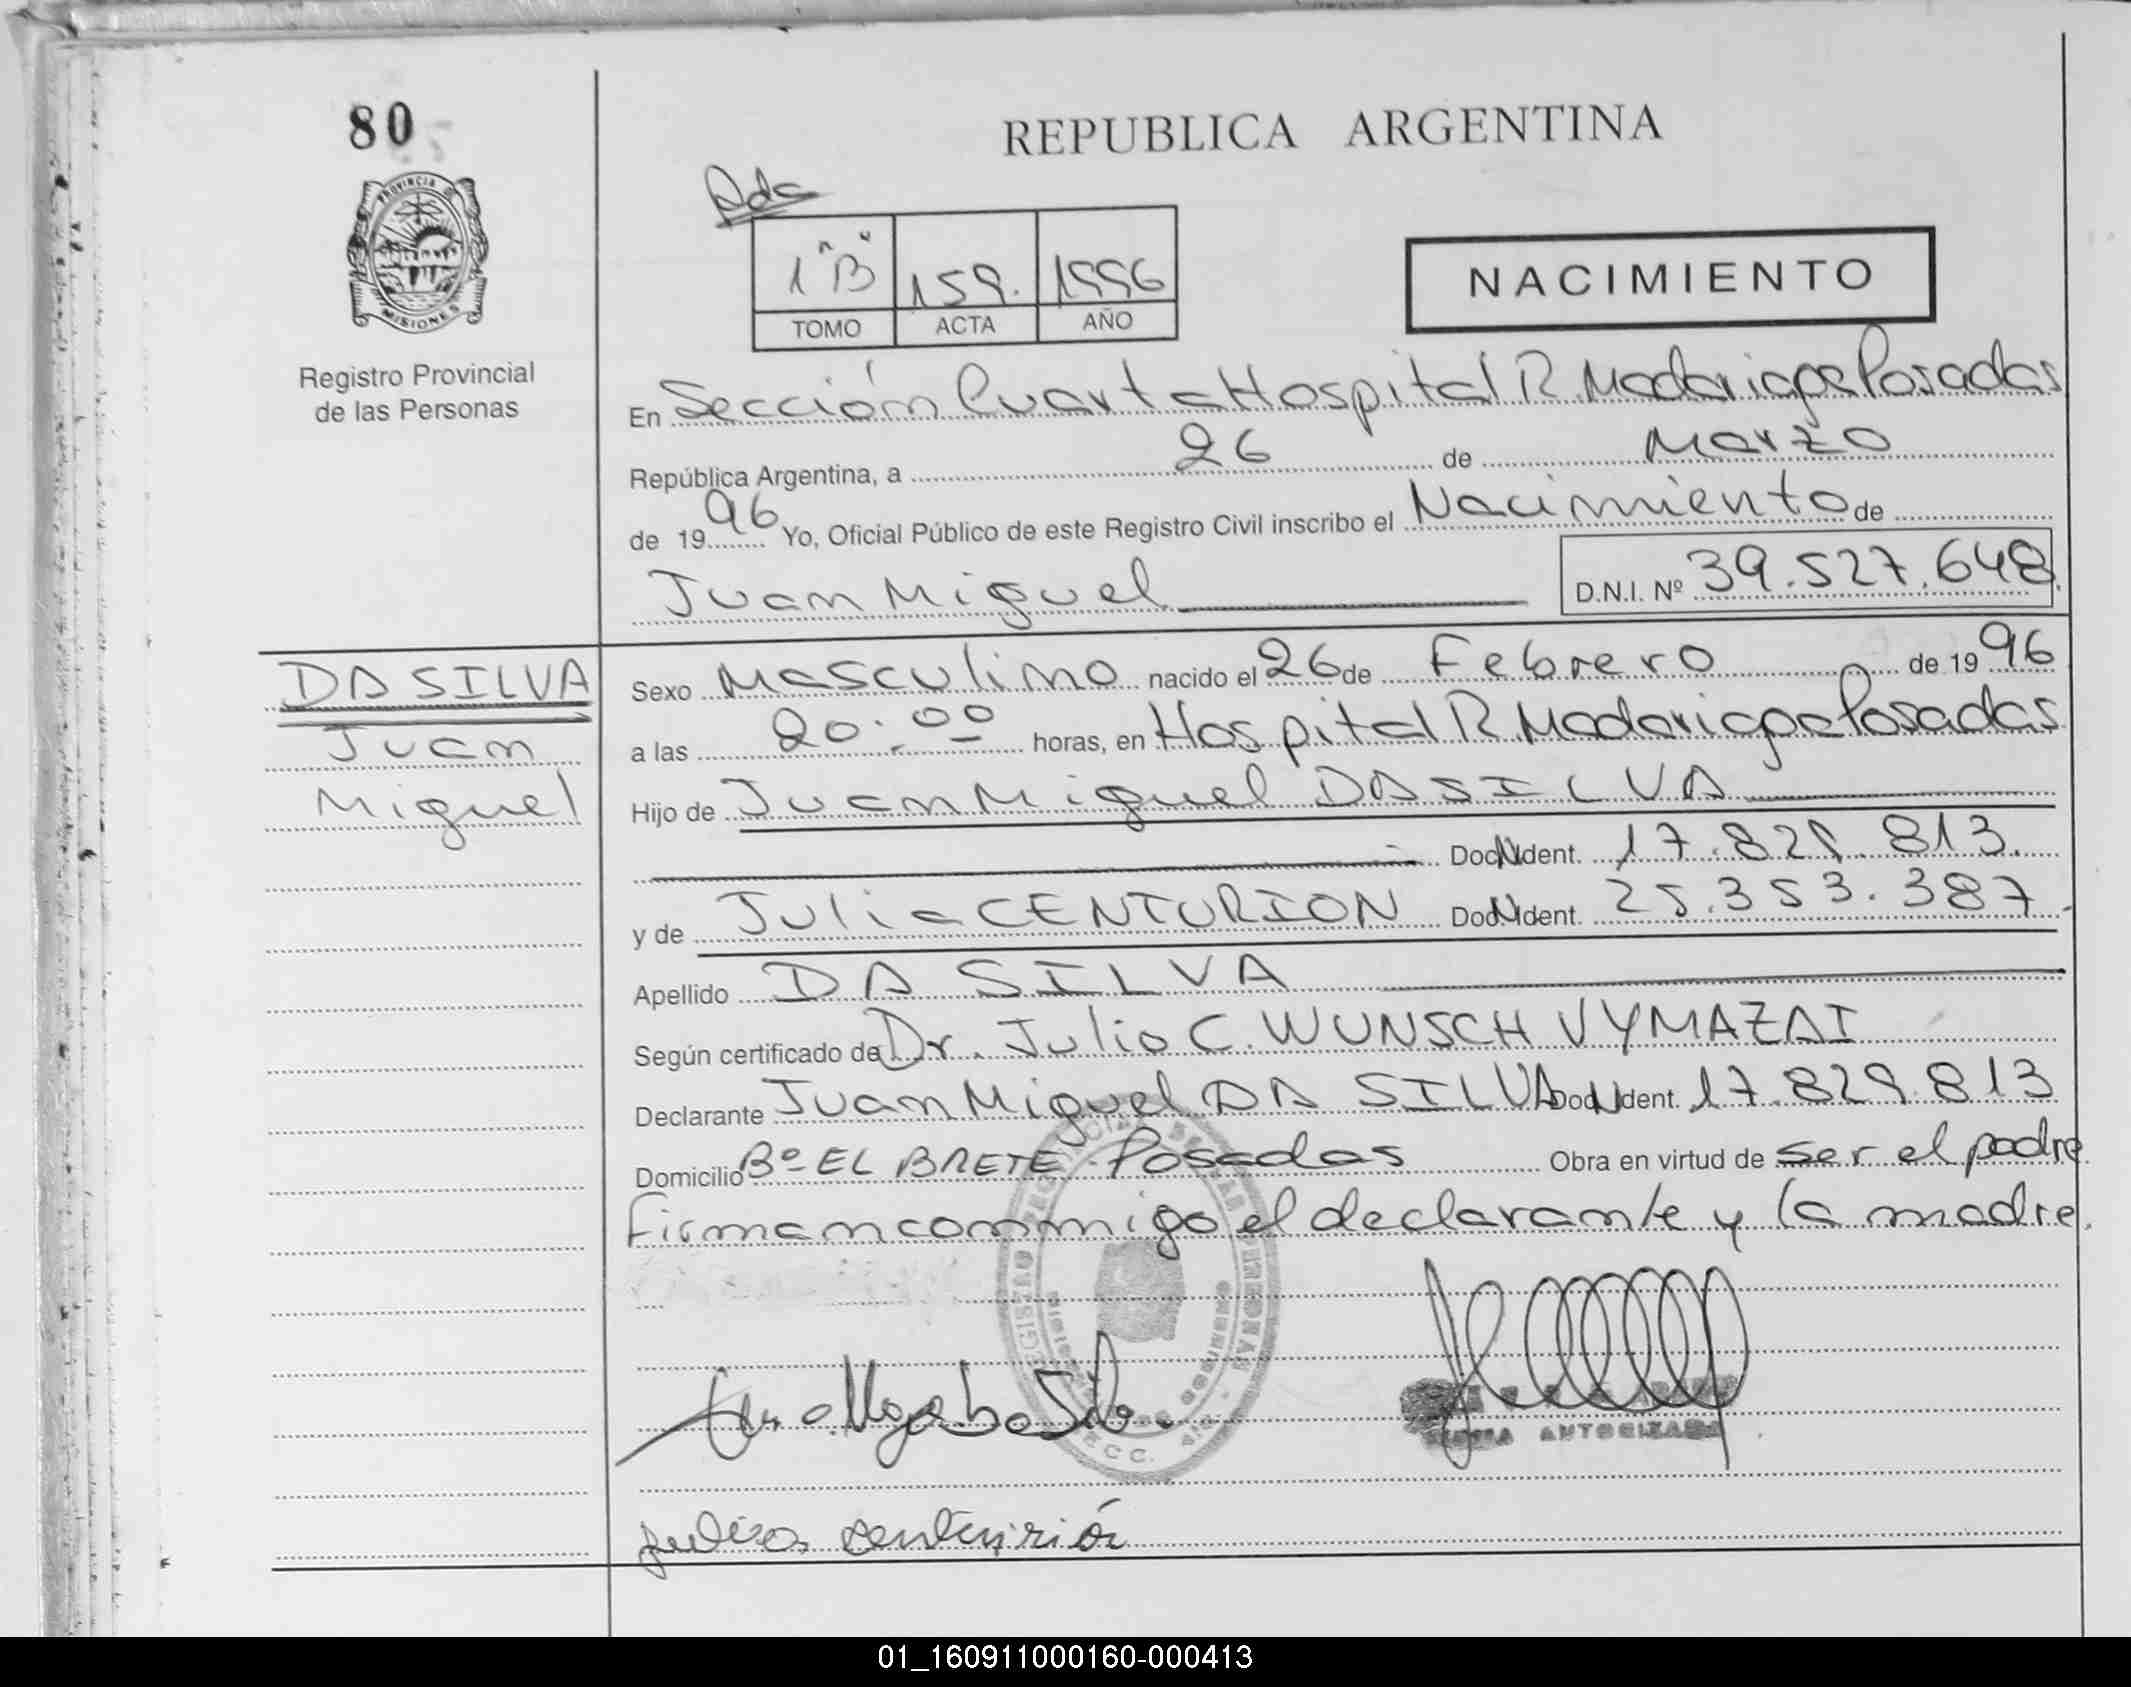 80
REPUBLICA ARGENTINA
PROVINCIA D
MISIONES
Registro Provincial
de las Personas
1 "B" 159. 1996
TOMO ACTA AÑO
NACIMIENTO
En Sección Cuarta Hospital R. Madariaga Posadas
República Argentina, a 26 de Marzo
de 1996 Yo, Oficial Público de este Registro Civil inscribo el Nacimiento de
Juan Miguel D.N.I. Nº 39.527.648.
DA SILVA
Juan
Miguel
Sexo Masculino nacido el 26 de Febrero de 1996
a las 20:00 horas, en Hospital R. Madariaga Posadas
Hijo de Juan Miguel DA SILVA
Doc. Ident. 17.829.813.
y de Julia CENTURION Doc. Ident. 25.353.387.
Apellido DA SILVA
Según certificado de Dr. Julio C. WUNSCH VYMAZAI
Declarante Juan Miguel DA SILVA Doc. Ident. 17.829.813
Domicilio Bº EL BRETE - Posadas Obra en virtud de ser el padre
Firman conmigo el declarante y la madre.
AUTORIZADA
julia centurión
01_160911000160-000413